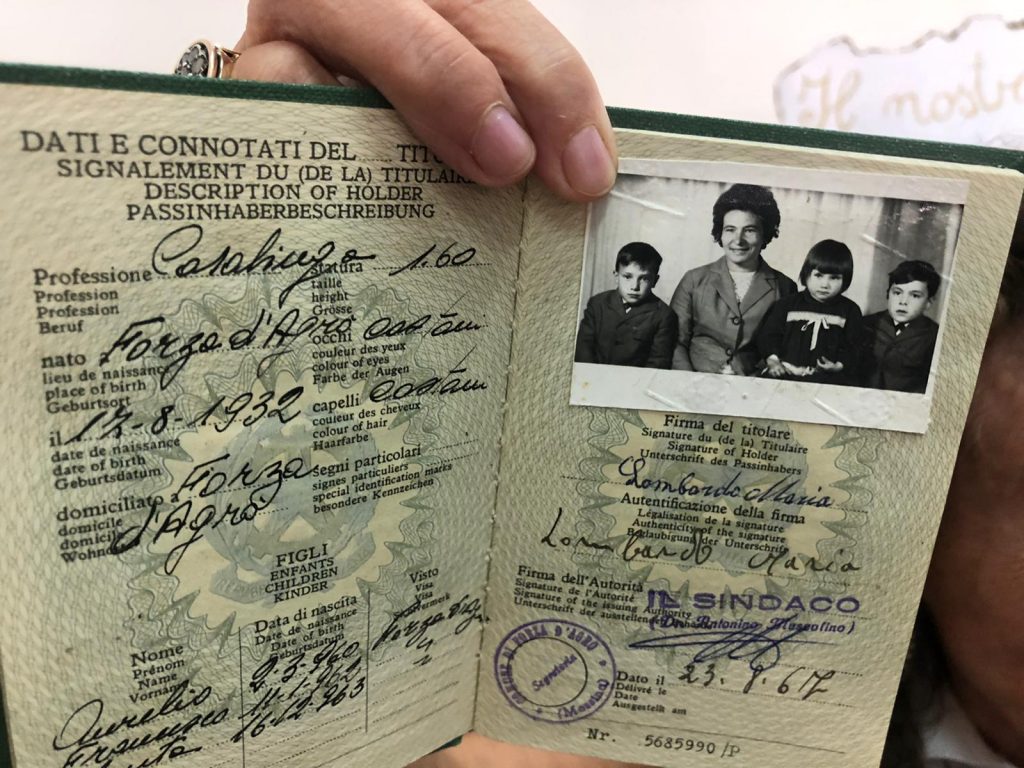 Il nostro
DATI E CONNOTATI DEL ..... TIT
SIGNALEMENT DU (DE LA) TITULAIRE
DESCRIPTION OF HOLDER
PASSINHABERBESCHREIBUNG
Professione Casalinga
Profession
Profession
Beruf
statura 1.60
taille
height
Grösse
nato Forza d'Agrò
lieu de naissance
place of birth
Geburtsort
occhi castani
couleur des yeux
colour of eyes
Farbe der Augen
il 17-8-1932
date de naissance
date of birth
Geburtsdatum
capelli castani
couleur des cheveux
colour of hair
Haarfarbe
domiciliato a Forza
d'Agrò
domicile
domicile
Wohno
segni particolari
signes particuliers
special identification marks
besondere Kennzeichen
FIGLI
ENFANTS
CHILDREN
KINDER
Nome
Prénom
Name
Vorname
Data di nascita
Date de naissance
Date of birth
Geburtsdatum
Visto
Visa
Visa
Aurelio 2.3.960
Francesco 11.1.962
16.12.963
Firma del titolare
Signature du (de la) Titulaire
Signature of Holder
Unterschrift des Passinhabers
Lombardo Maria
Autentificazione della firma
Légalisation de la signature
Authenticity of the signature
Beglaubigung der Unterschrift
Lombardo Maria
Firma dell'Autorità
Signature de l'Autorité
Signature of the issuing Authority
Unterschrift der ausstellenden
IL SINDACO
(Dr. Antonino Muscolino)
COMUNE DI FORZA D'AGRO
Segreteria
(Messina)
Dato il 23.8.67
Délivré le
Date
Ausgestellt am
Nr. 5685990/P